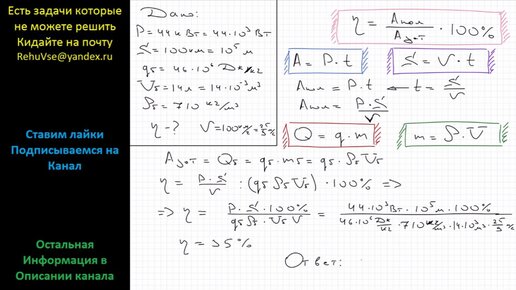 Есть задачи которые
не можете решить
Кидайте на почту
RehuVse@yandex.ru
Ставим лайки
Подписываемся на
Канал
Остальная
Информация в
Описании канала
Дано:
P=44кВт=44·10³Вт
S=100км=10⁵м
qб=46·10⁶ Дж/кг
Vб=14л=14·10⁻³м³
ρб=710 кг/м³
η-? V=100км/ч=25/9 м/с
η = Aпол/Aзат · 100%
A = P·t
S = V·t
Aпол = P·t ← t = S/V
Aпол = P·S/V
Q = q·m
m = ρ·V
Aзат = Qб = qб·mб = qб·ρб Vб
η = P·S/V : (qб ρб Vб) · 100% =>
=> η = P·S·100%/qб ρб Vб V = 44·10³Вт·10⁵м·100%
η = 35%
Ответ: